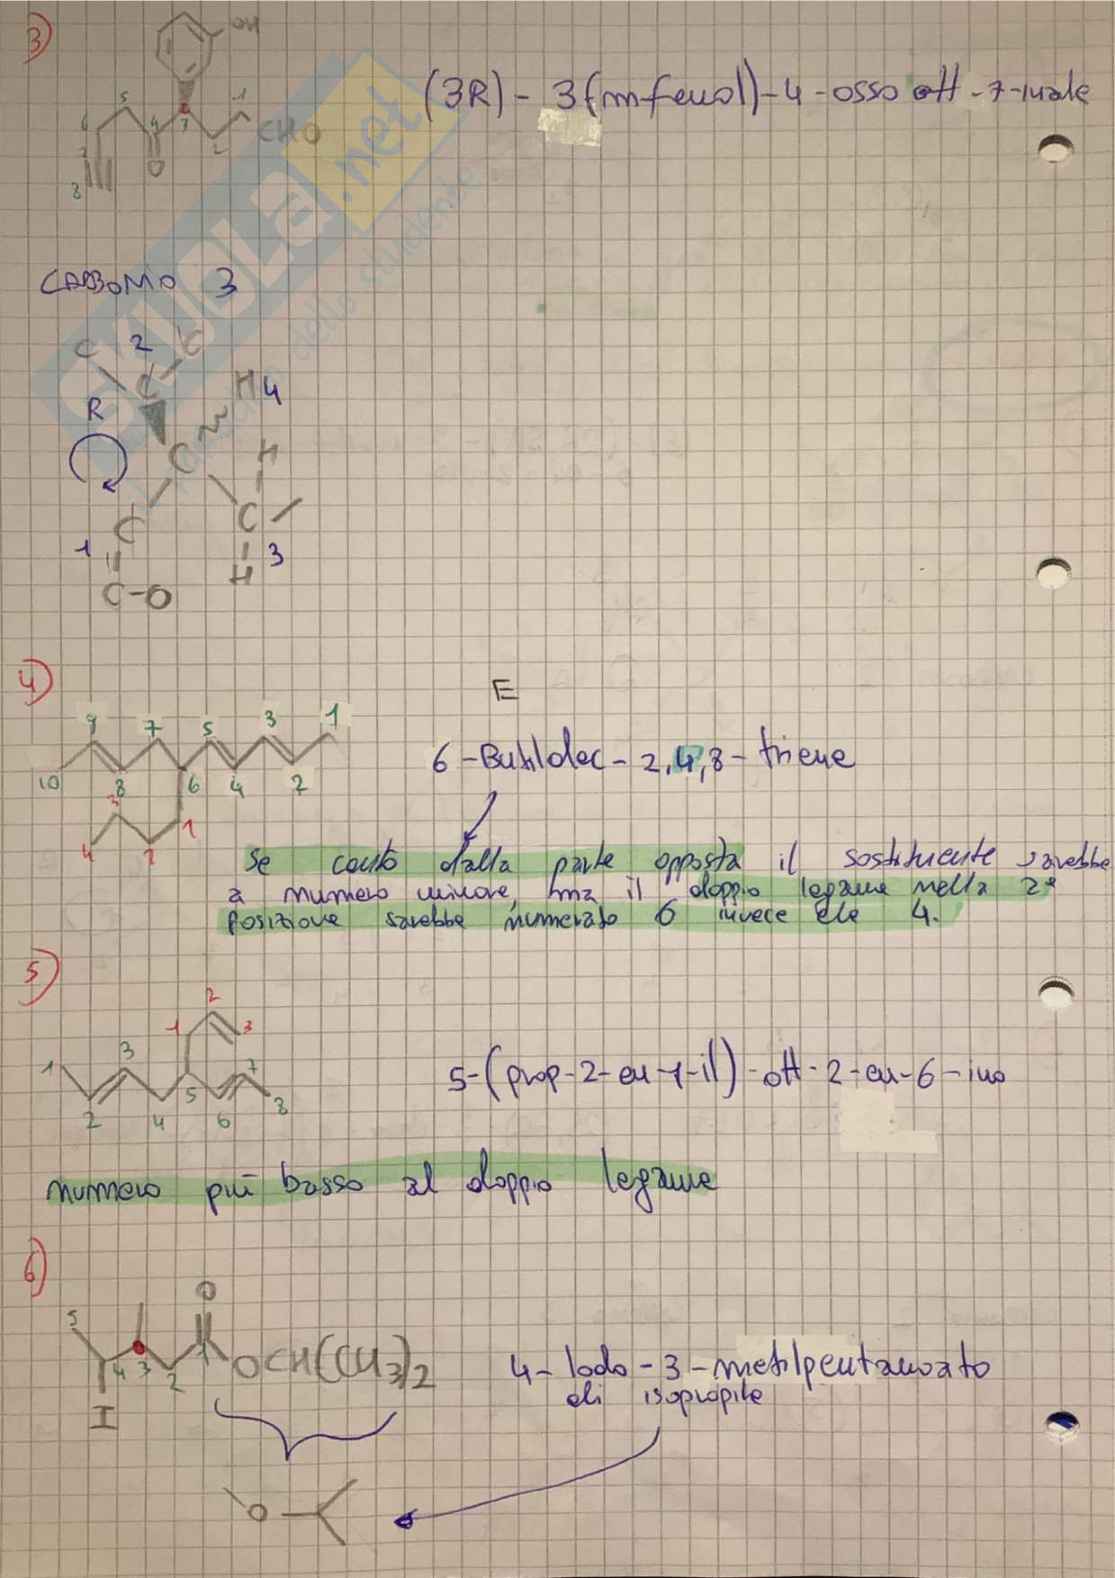 3)
OH
(3R) - 3(m-fenol)-4-osso ott-7-inale
5
6
4
3
1
CHO
7
O
2
8
SKUOLA.net
CARBONIO 3
C 2 C
C
H 4
R
C
H
C
C
1
3
H
C-O
4)
E
9 7 5 3 1
10 8 6 4 2
6-Butildec-2,4,8-triene
3
1
4 2
Se conto dalla parte opposta il sostituente sarebbe
a numero minore, ma il doppio legame nella 2ª
posizione sarebbe numerato 6 invece che 4.
5)
2
1 3
1 3 7
5-(prop-2-en-1-il)-ott-2-en-6-ino
2 4 5 6 8
numero più basso al doppio legame
6)
O
5
4 3 2 1
OCH(CH3)2
4-Iodo-3-metilpentanoato
di isopropile
I
O